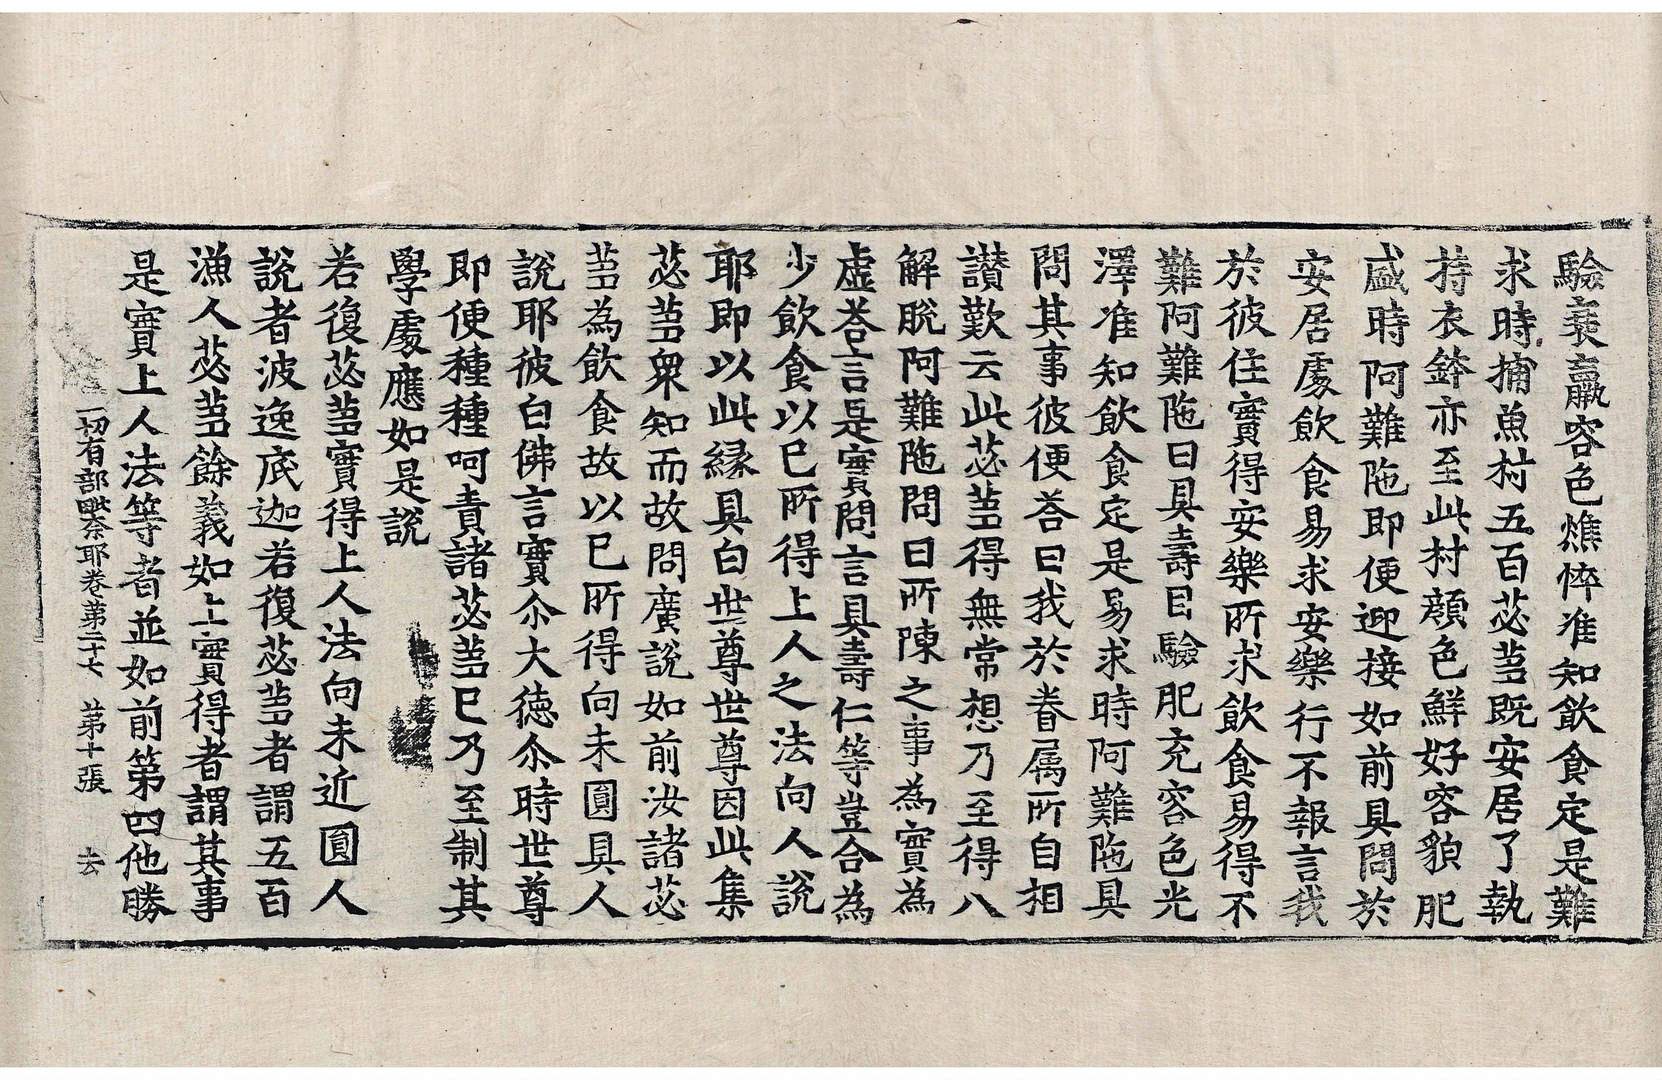 驗衰羸容色憔悴准知飲食定是難
求時捕魚村五百苾芻既安居了執
持衣鉢亦至此村顔色鮮好容貌肥
盛時阿難陁即便迎接如前具問於
安居處飲食易求安樂行不報言我
於彼住實得安樂所求飲食易得不
難阿難陁曰具壽目驗肥充容色光
澤准知飲食定是易求時阿難陁具
問其事彼便荅曰我於眷属所自相
讃歎云此苾芻得無常想乃至得八
解脫阿難陁問曰所陳之事為實為
虛荅言是實問言具壽仁等豈合為
少飲食以已所得上人之法向人說
耶即以此縁具白世尊世尊因此集
苾芻衆知而故問廣說如前汝諸苾
芻為飲食故以已所得向未圓具人
說耶彼白佛言實尒大德尒時世尊
即便種種呵責諸苾芻已乃至制其
學處應如是說
若復苾芻實得上人法向未近圓人
說者波逸底迦若復苾芻者謂五百
漁人苾芻餘義如上實得者謂其事
是實上人法等者並如前第四他勝
一切有部毗奈耶卷第二十七 第十張 去